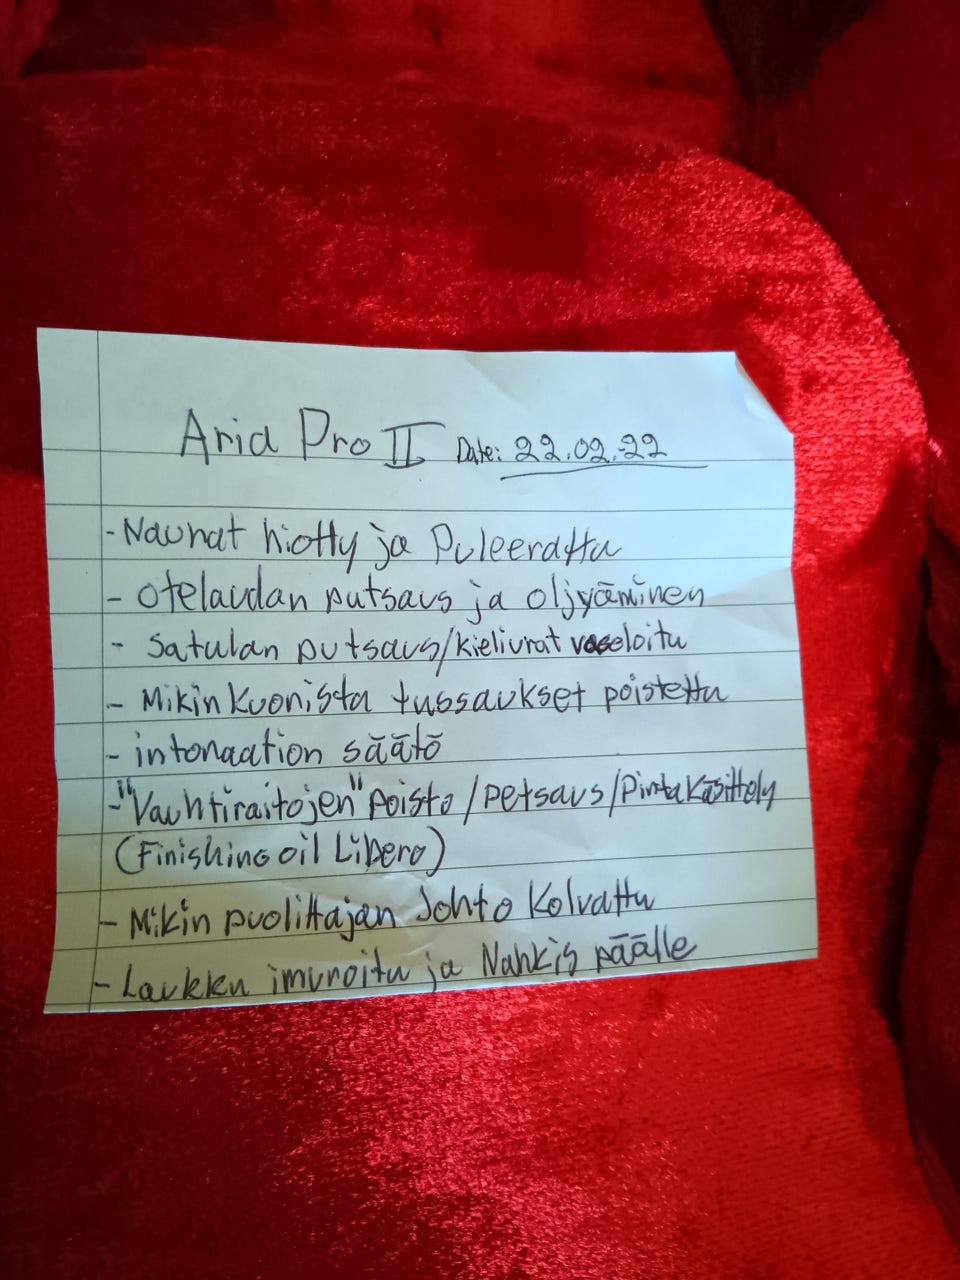 Aria Pro II Date: 22.02.-22
- Nauhat hiottu ja Puleerattu
- Otelaudan putsaus ja öljyäminen
- Satulan putsaus/kieliurat vaseloitu
- Mikin kuorista tussaukset poistettu
- intonaation säätö
- "Vauhtiraitojen" poisto/petsaus/Pintakäsittely
(Finishing oil Libero)
- Mikin puolittajan Johto Kolvattu
- Laukku imuroitu ja Nahkis päälle